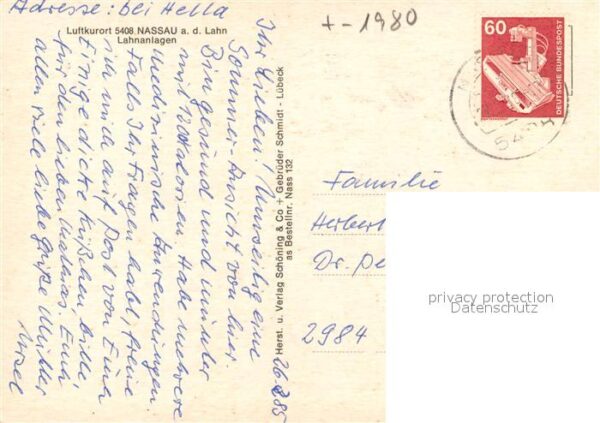 Adresse: bei Hella
Luftkurort 5408 NASSAU a. d. Lahn
Lahnanlagen
+-1980
60
DEUTSCHE BUNDESPOST
Ihr Lieben! Umseitig eine
Sommer-Ansicht von hier.
Bin gesund und munter
mit Habe mehrere
medizinische Anwendungen
Falls Ihr Fragen habt, freue
ich mich auf Post von Euch
Einige dicke Küßchen, bitte,
für den lieben Mathias. Euch
allen viele liebe Grüße
Ursel
26.2.85
Herst. u. Verlag Schöning & Co + Gebrüder Schmidt - Lübeck
as Bestellnr. Nass 132
Familie
Herbert
Dr. Pe
2984
privacy protection
Datenschutz